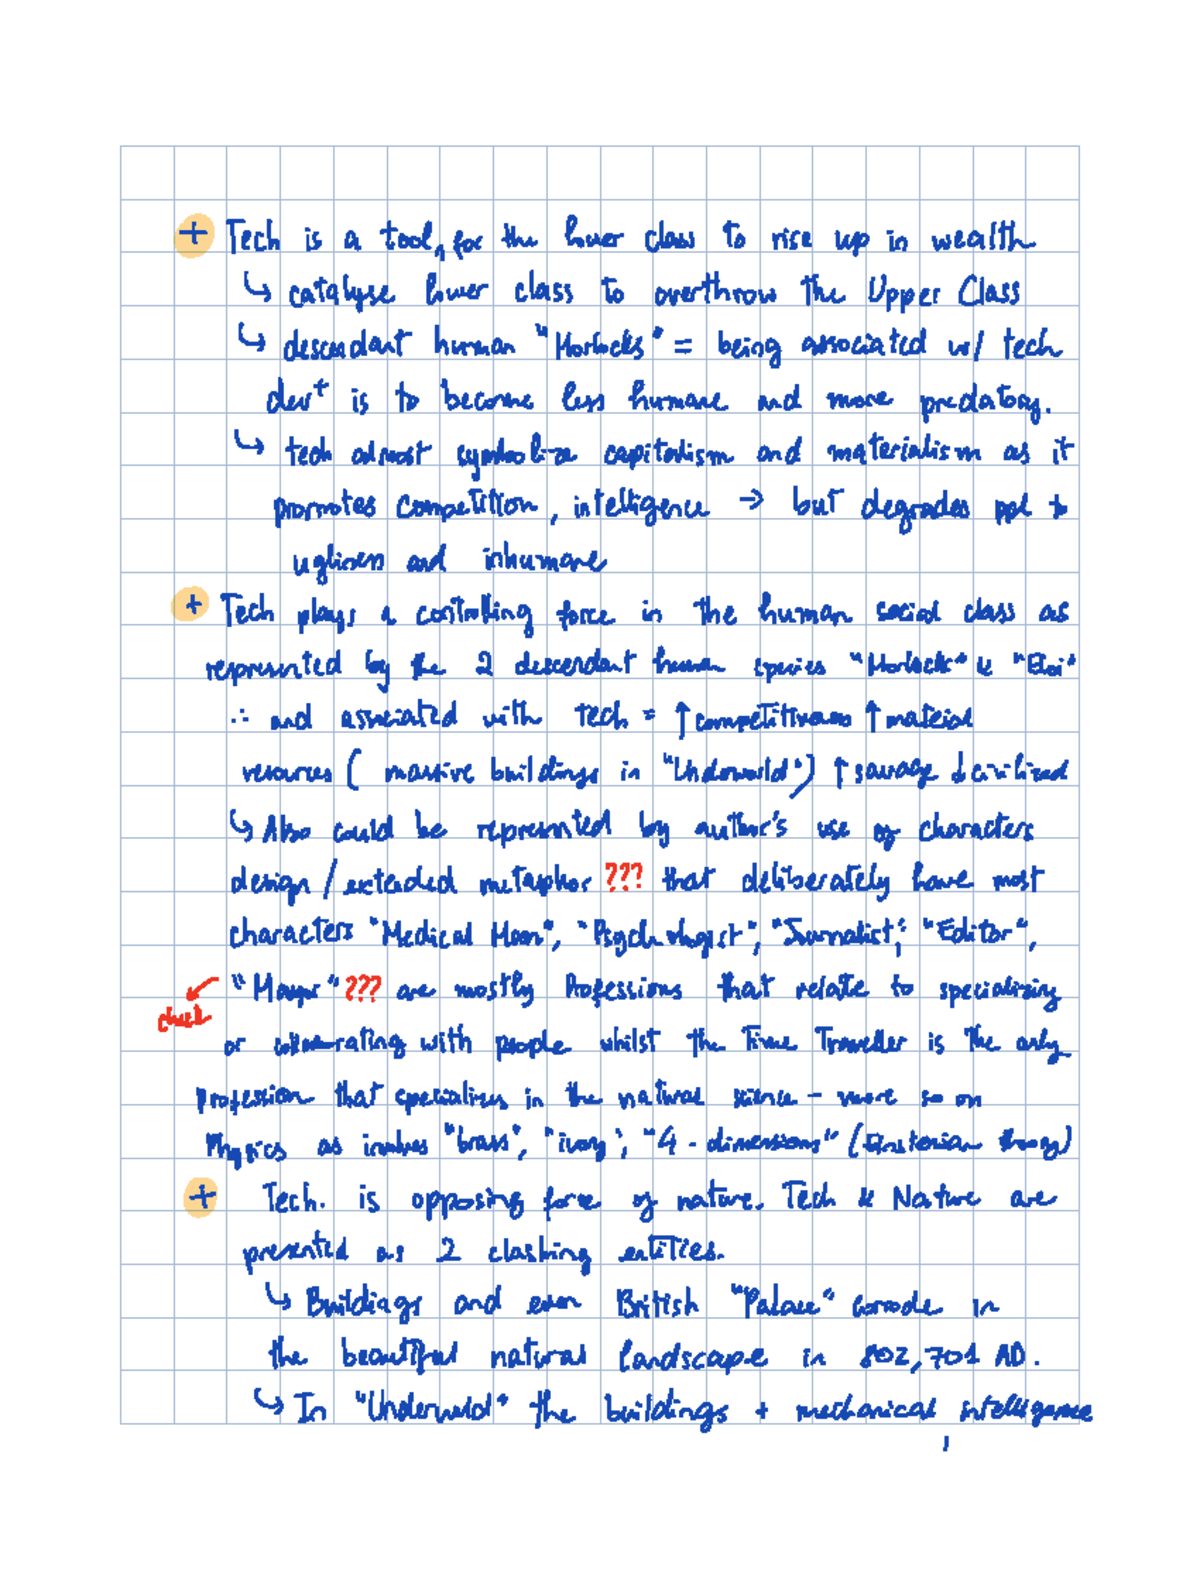 + Tech is a tool, for the lower class to rise up in wealth
↳ catalyse lower class to overthrow the Upper Class
↳ descendant human "Morlocks" = being associated w/ tech
devt is to become less humane and more predatory.
↳ tech almost symbolize capitalism and materialism as it
promotes competition, intelligence → but degrades ppl to
ugliness and inhumane
+ Tech plays a controlling force in the human social class as
represented by the 2 descendant human species "Morlock" & "Eloi"
∴ and associated with tech = ↑ competitiveness ↑ material
resources ( massive buildings in "Underworld") ↑ savage ↓ civilized
↳ Also could be represented by author's use of characters
design / extended metaphor ??? that deliberately have most
characters "Medical Man", "Psychologist", "Journalist", "Editor",
"Mayor" ??? are mostly Professions that relate to specializing
check
or with people whilst the Time Traveller is the only
profession that specializes in the natural science - more so on
Physics as involves "brass", "ivory", "4 - dimensions" (Einsteinian theory)
+ Tech. is opposing force of nature. Tech & Nature are
presented as 2 clashing entities.
↳ Buildings and even British "Palace" corrode in
the beautiful natural landscape in 802,701 AD.
↳ In "Underworld" the buildings + mechanical intelligence